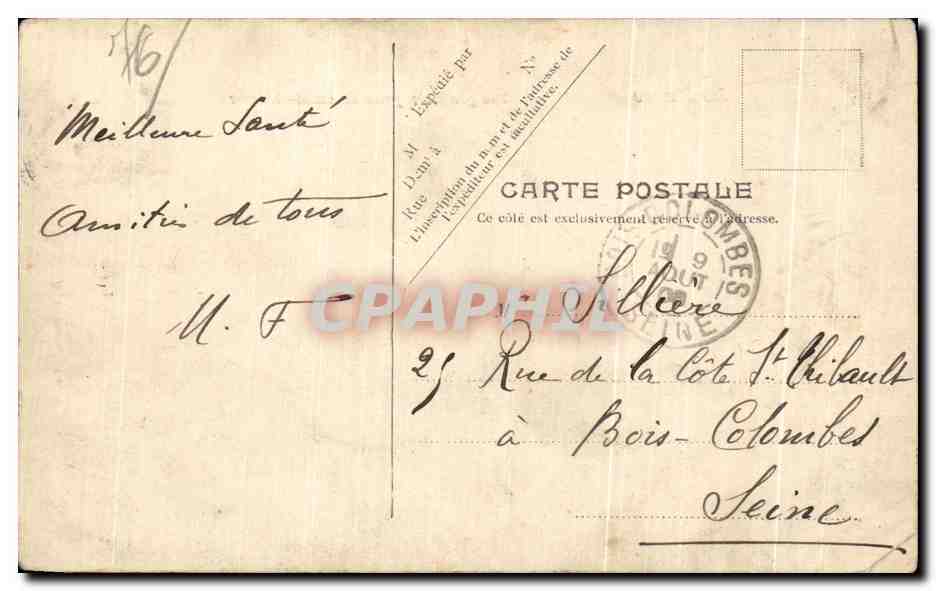 76
Meilleure Santé
Amitiés de tous
M. F
Expédié par
M N°
Demt à
Rue
L'inscription du nom et de l'adresse de
l'expéditeur est facultative.
CARTE POSTALE
Ce côté est exclusivement réservé à l'adresse.
COLOMBES
19 9
AOUT
SEINE
CPAPHIL
25 Rue de la Côte St. Thibault
à Bois-Colombes
Seine